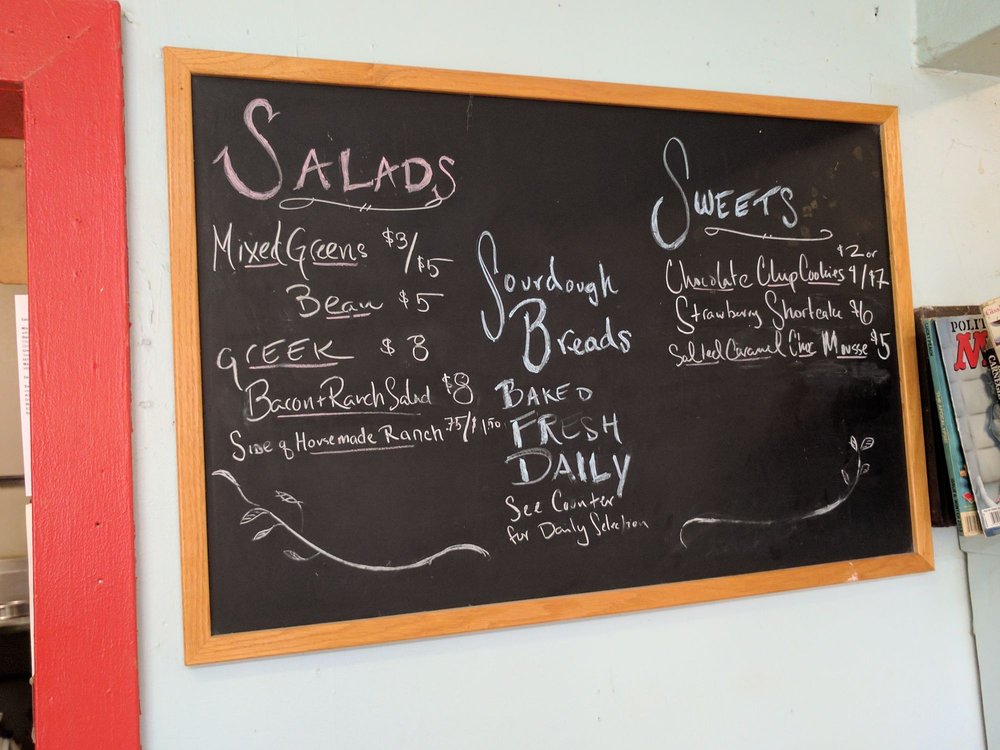 SALADS
Mixed Greens $3/$5
Bean $5
GREEK $8
Bacon + Ranch Salad $8
Side of Housemade Ranch .75/$1.50
Sourdough
Breads
BAKED
FRESH
DAILY
See Counter
for Daily Selection
SWEETS
$2 or
Chocolate Chip Cookies 4/$7
Strawberry Shortcake $6
Salted Caramel Choc Mousse $5
POLI
M